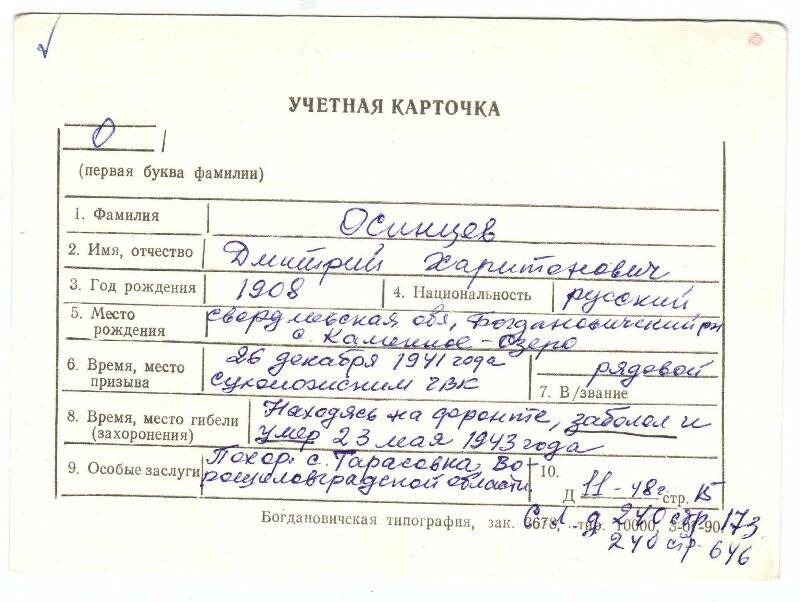 УЧЕТНАЯ КАРТОЧКА
О
(первая буква фамилии)
1. Фамилия Осинцев
2. Имя, отчество Дмитрий Харитонович
3. Год рождения 1908 4. Национальность русский
5. Место рождения свердловская обл, Богдановичский рн
с. Каменное-Озеро
6. Время, место призыва 26 декабря 1941 года
сухоложским ГВК
7. В/звание рядовой
8. Время, место гибели (захоронения) Находясь на фронте, заболел и
умер 23 мая 1943 года
9. Особые заслуги Похор. с. Тарасовка, Во-
рошиловградской области
10.
Д 11-48г. стр. 15
Богдановичская типография, зак. 3678, тир. 10000, 3-01-90
д 240 стр. 173
240 стр. 646